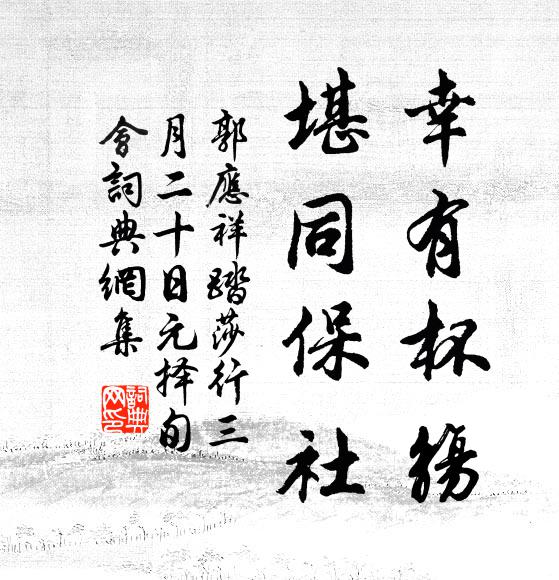 幸有杯觴
堪同保社
郭應祥踏莎行三
月二十日元择旬
會詞典網集
詞典
网印